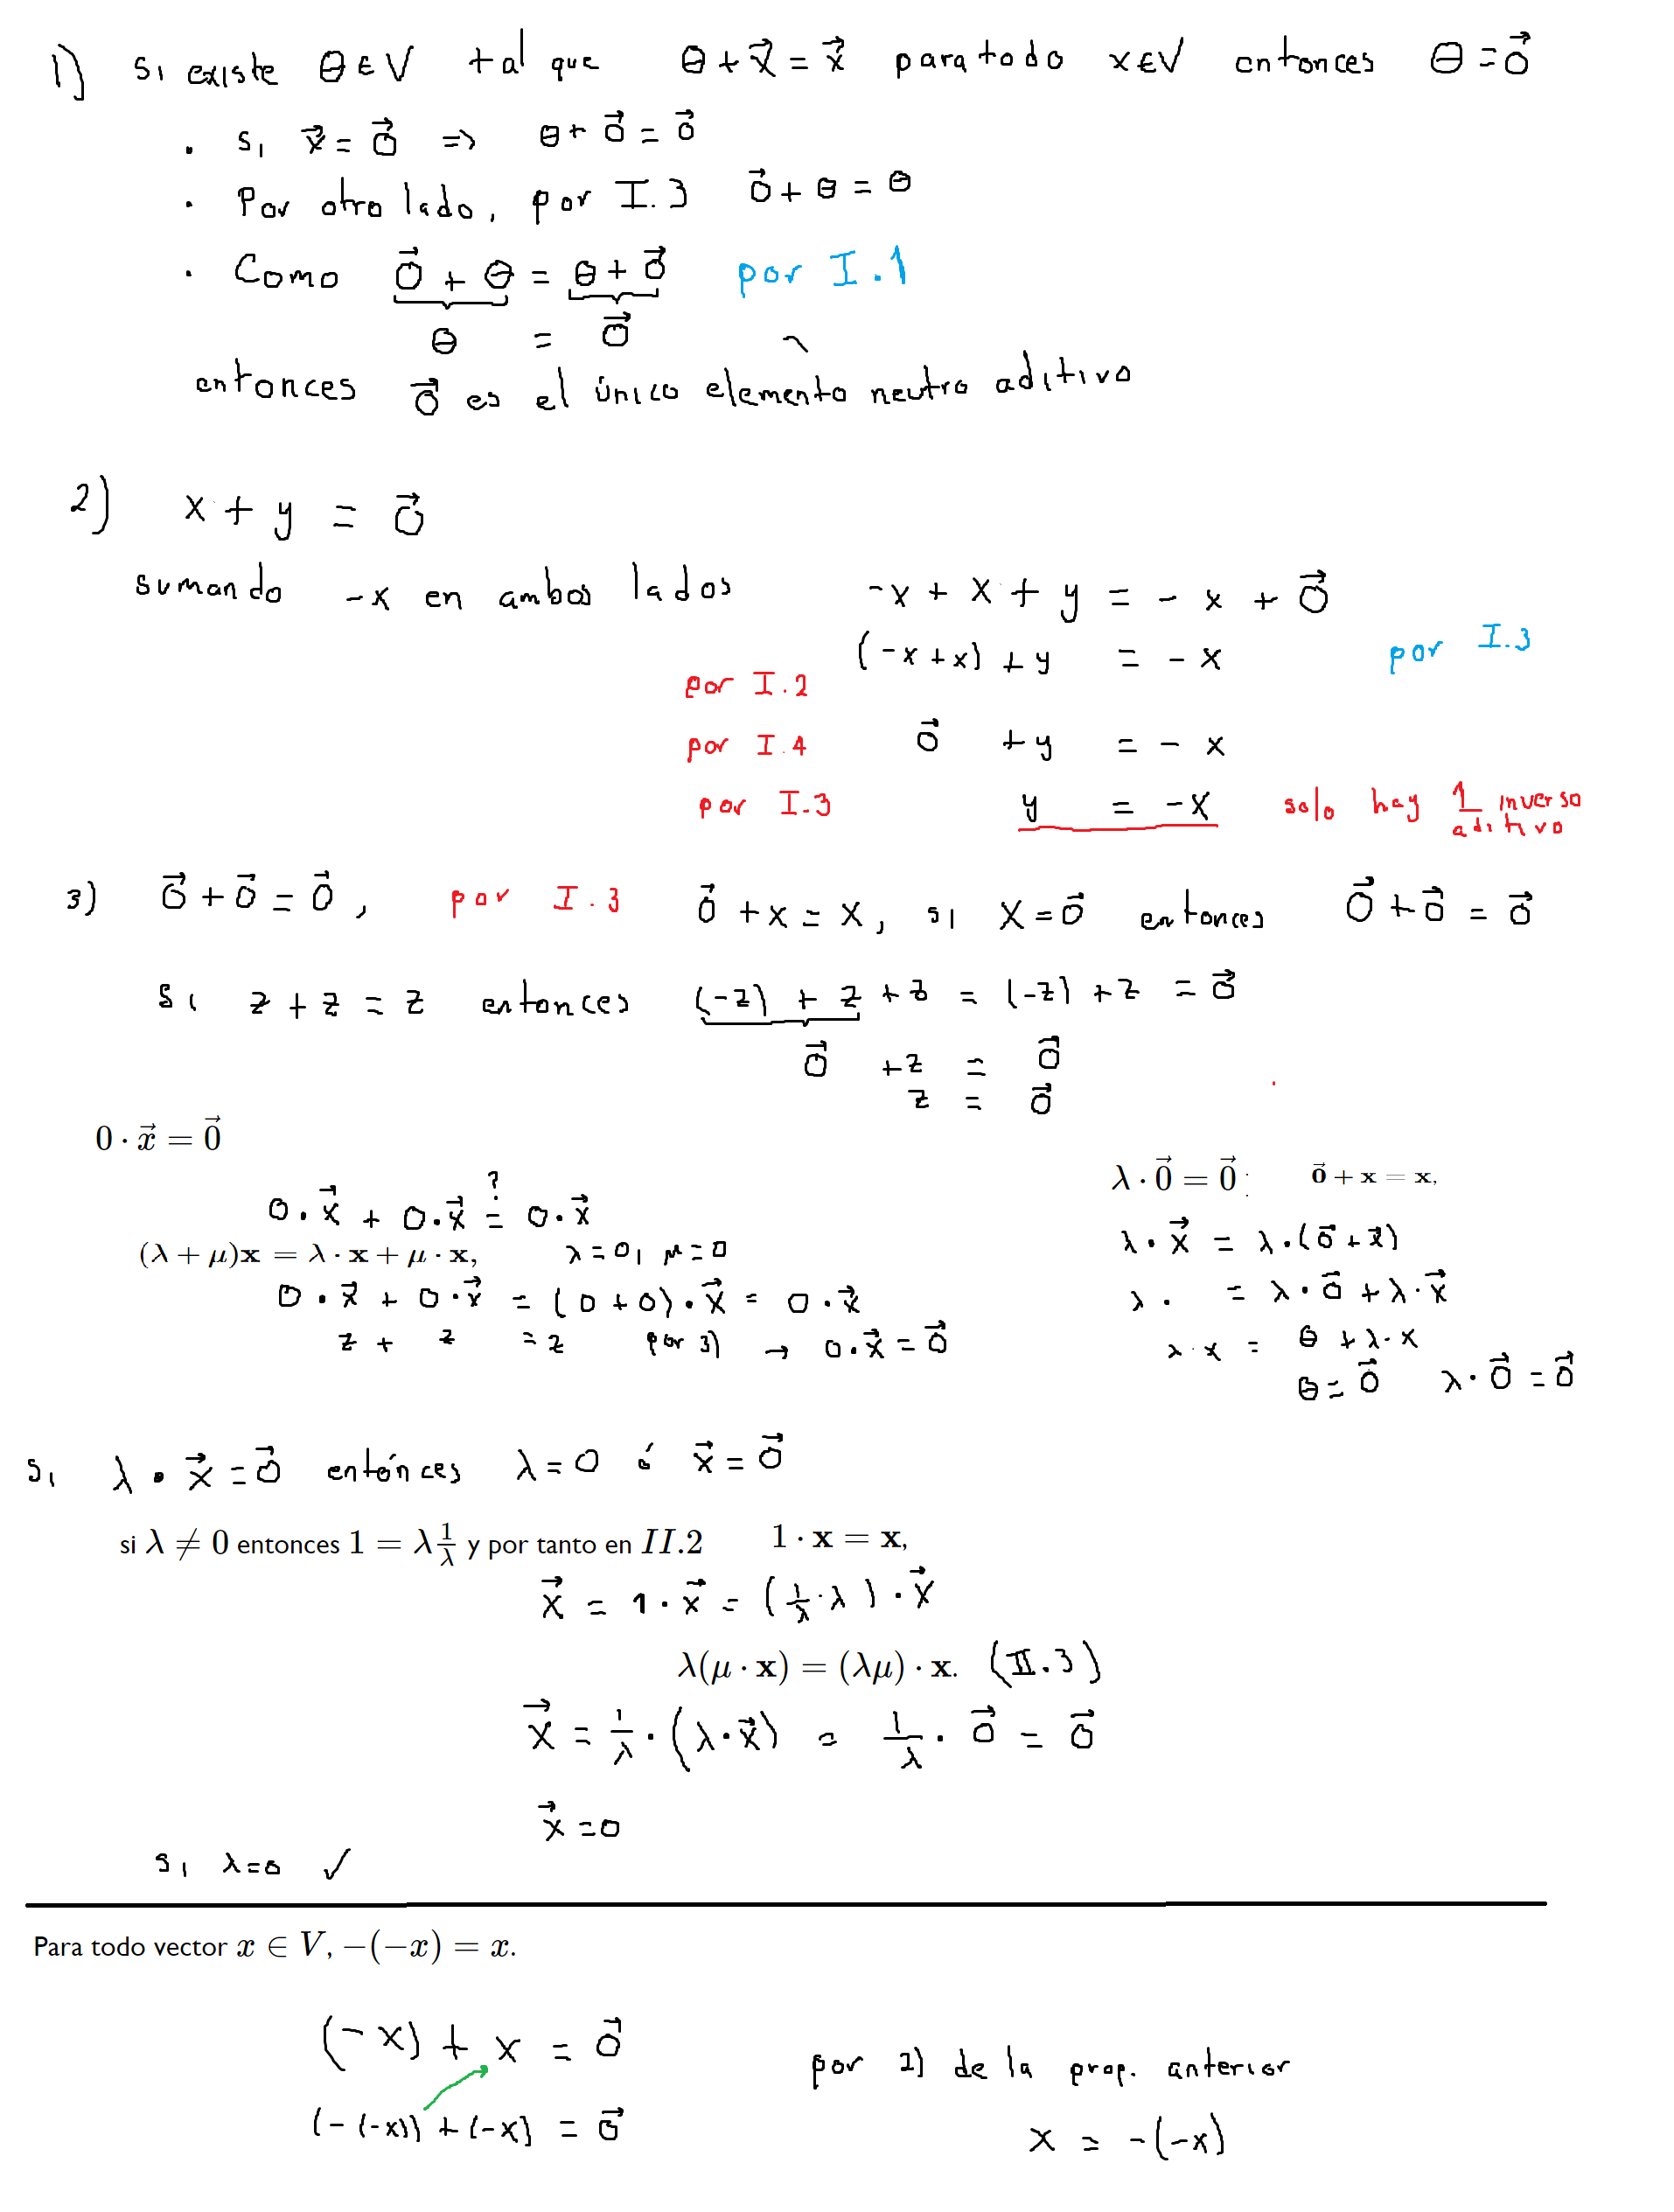 1) Si existe θ∈V tal que θ+x⃗=x⃗ para todo x∈V entonces θ=0⃗
· Si x⃗=0⃗ => θ+0⃗=0⃗
· Por otro lado, por I.3 0⃗+θ=θ
· Como 0⃗+θ=θ+0⃗ por I.1
θ = 0⃗
entonces 0⃗ es el único elemento neutro aditivo
2) x+y=0⃗
sumando -x en ambos lados -x+x+y=-x+0⃗
(-x+x)+y = -x por I.3
por I.2
por I.4 0⃗ +y = -x
por I.3 y = -x solo hay 1 inverso aditivo
3) 0⃗+0⃗=0⃗, por I.3 0⃗+x=x, si x=0⃗ entonces 0⃗+0⃗=0⃗
Si z+z=z entonces (-z)+z+z=(-z)+z=0⃗
0⃗ +z = 0⃗
z = 0⃗
0·x⃗=0⃗
λ·0⃗=0⃗ 0⃗+x=x,
0·x⃗+0·x⃗ ?= 0·x⃗
λ·x⃗=λ·(0⃗+x⃗)
(λ+μ)x=λ·x+μ·x, λ=0, μ=0
λ· =λ·0⃗+λ·x⃗
0·x⃗+0·x⃗=(0+0)·x⃗=0·x⃗
z+ z =z por 3) → 0·x⃗=0⃗
λ·x= θ+λ·x
θ=0⃗ λ·0⃗=0⃗
Si λ·x⃗=0⃗ entónces λ=0 ó x⃗=0⃗
si λ≠0 entonces 1=λ1/λ y por tanto en II.2 1·x=x,
x⃗=1·x⃗=(1/λ·λ)·x⃗
λ(μ·x)=(λμ)·x. (II.3)
x⃗=1/λ·(λ·x⃗)=1/λ·0⃗=0⃗
x⃗=0
Si λ=0 ✓
Para todo vector x∈V, -(-x)=x.
(-x)+x=0⃗
por 2) de la prop. anterior
(-(-x))+(-x)=0⃗
x=-(-x)